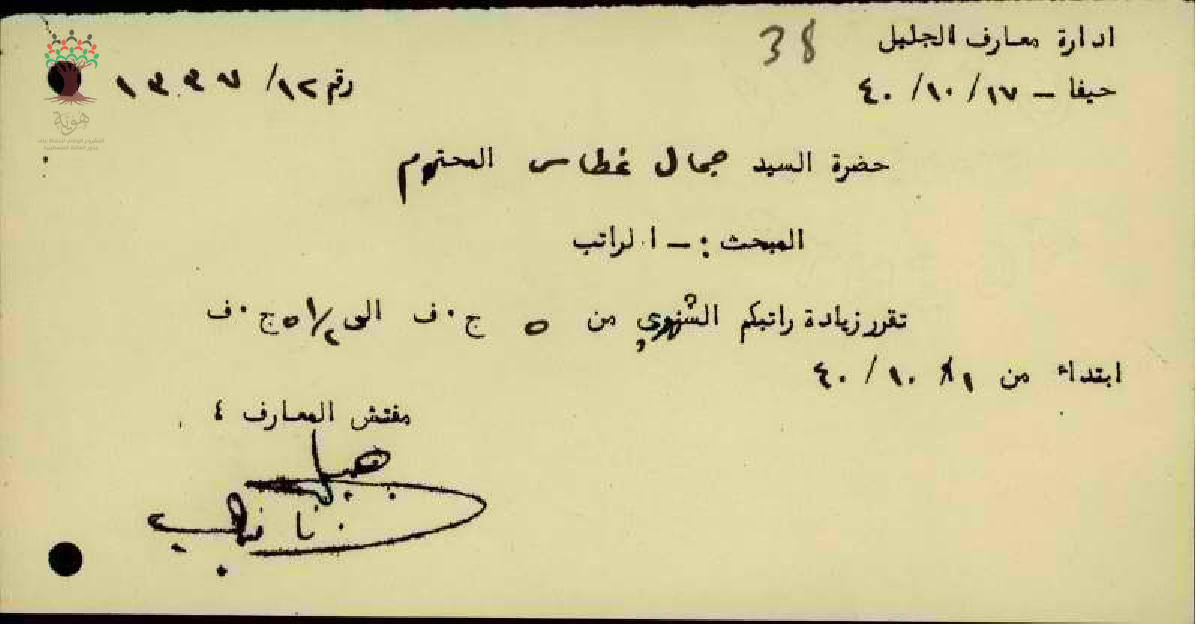 ادارة معارف الجليل
38
حيفا – ١٧/ ١٠/ ٤٠
رقم ١٢/ ١٣٣٧
هوية
حضرة السيد جمال غطاس المحترم
المبحث :– الراتب
تقرر زيادة راتبكم الشهري من ٥ ج٠ف الى ٥ ١/٢ ج٠ف
ابتداء من ١/ ١٠/ ٤٠
مفتش المعارف ٤